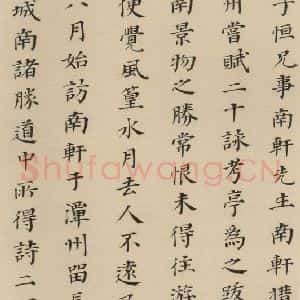 子恒兄事南軒先生南軒攜
州嘗賦二十詠考亭為之跋
南景物之勝常恨未得往游
便覺風篁水月去人不遠
八月始訪南軒于潭州留長
城南諸勝道中所得詩二
Shufawang.CN